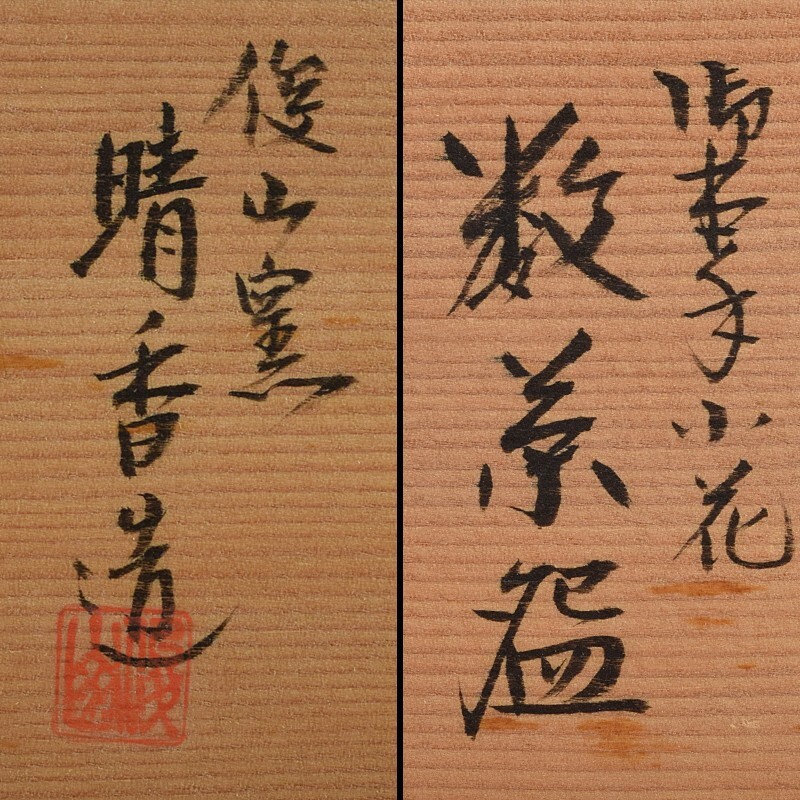 俊山窯
晴香造
御本手小花
数茶盌